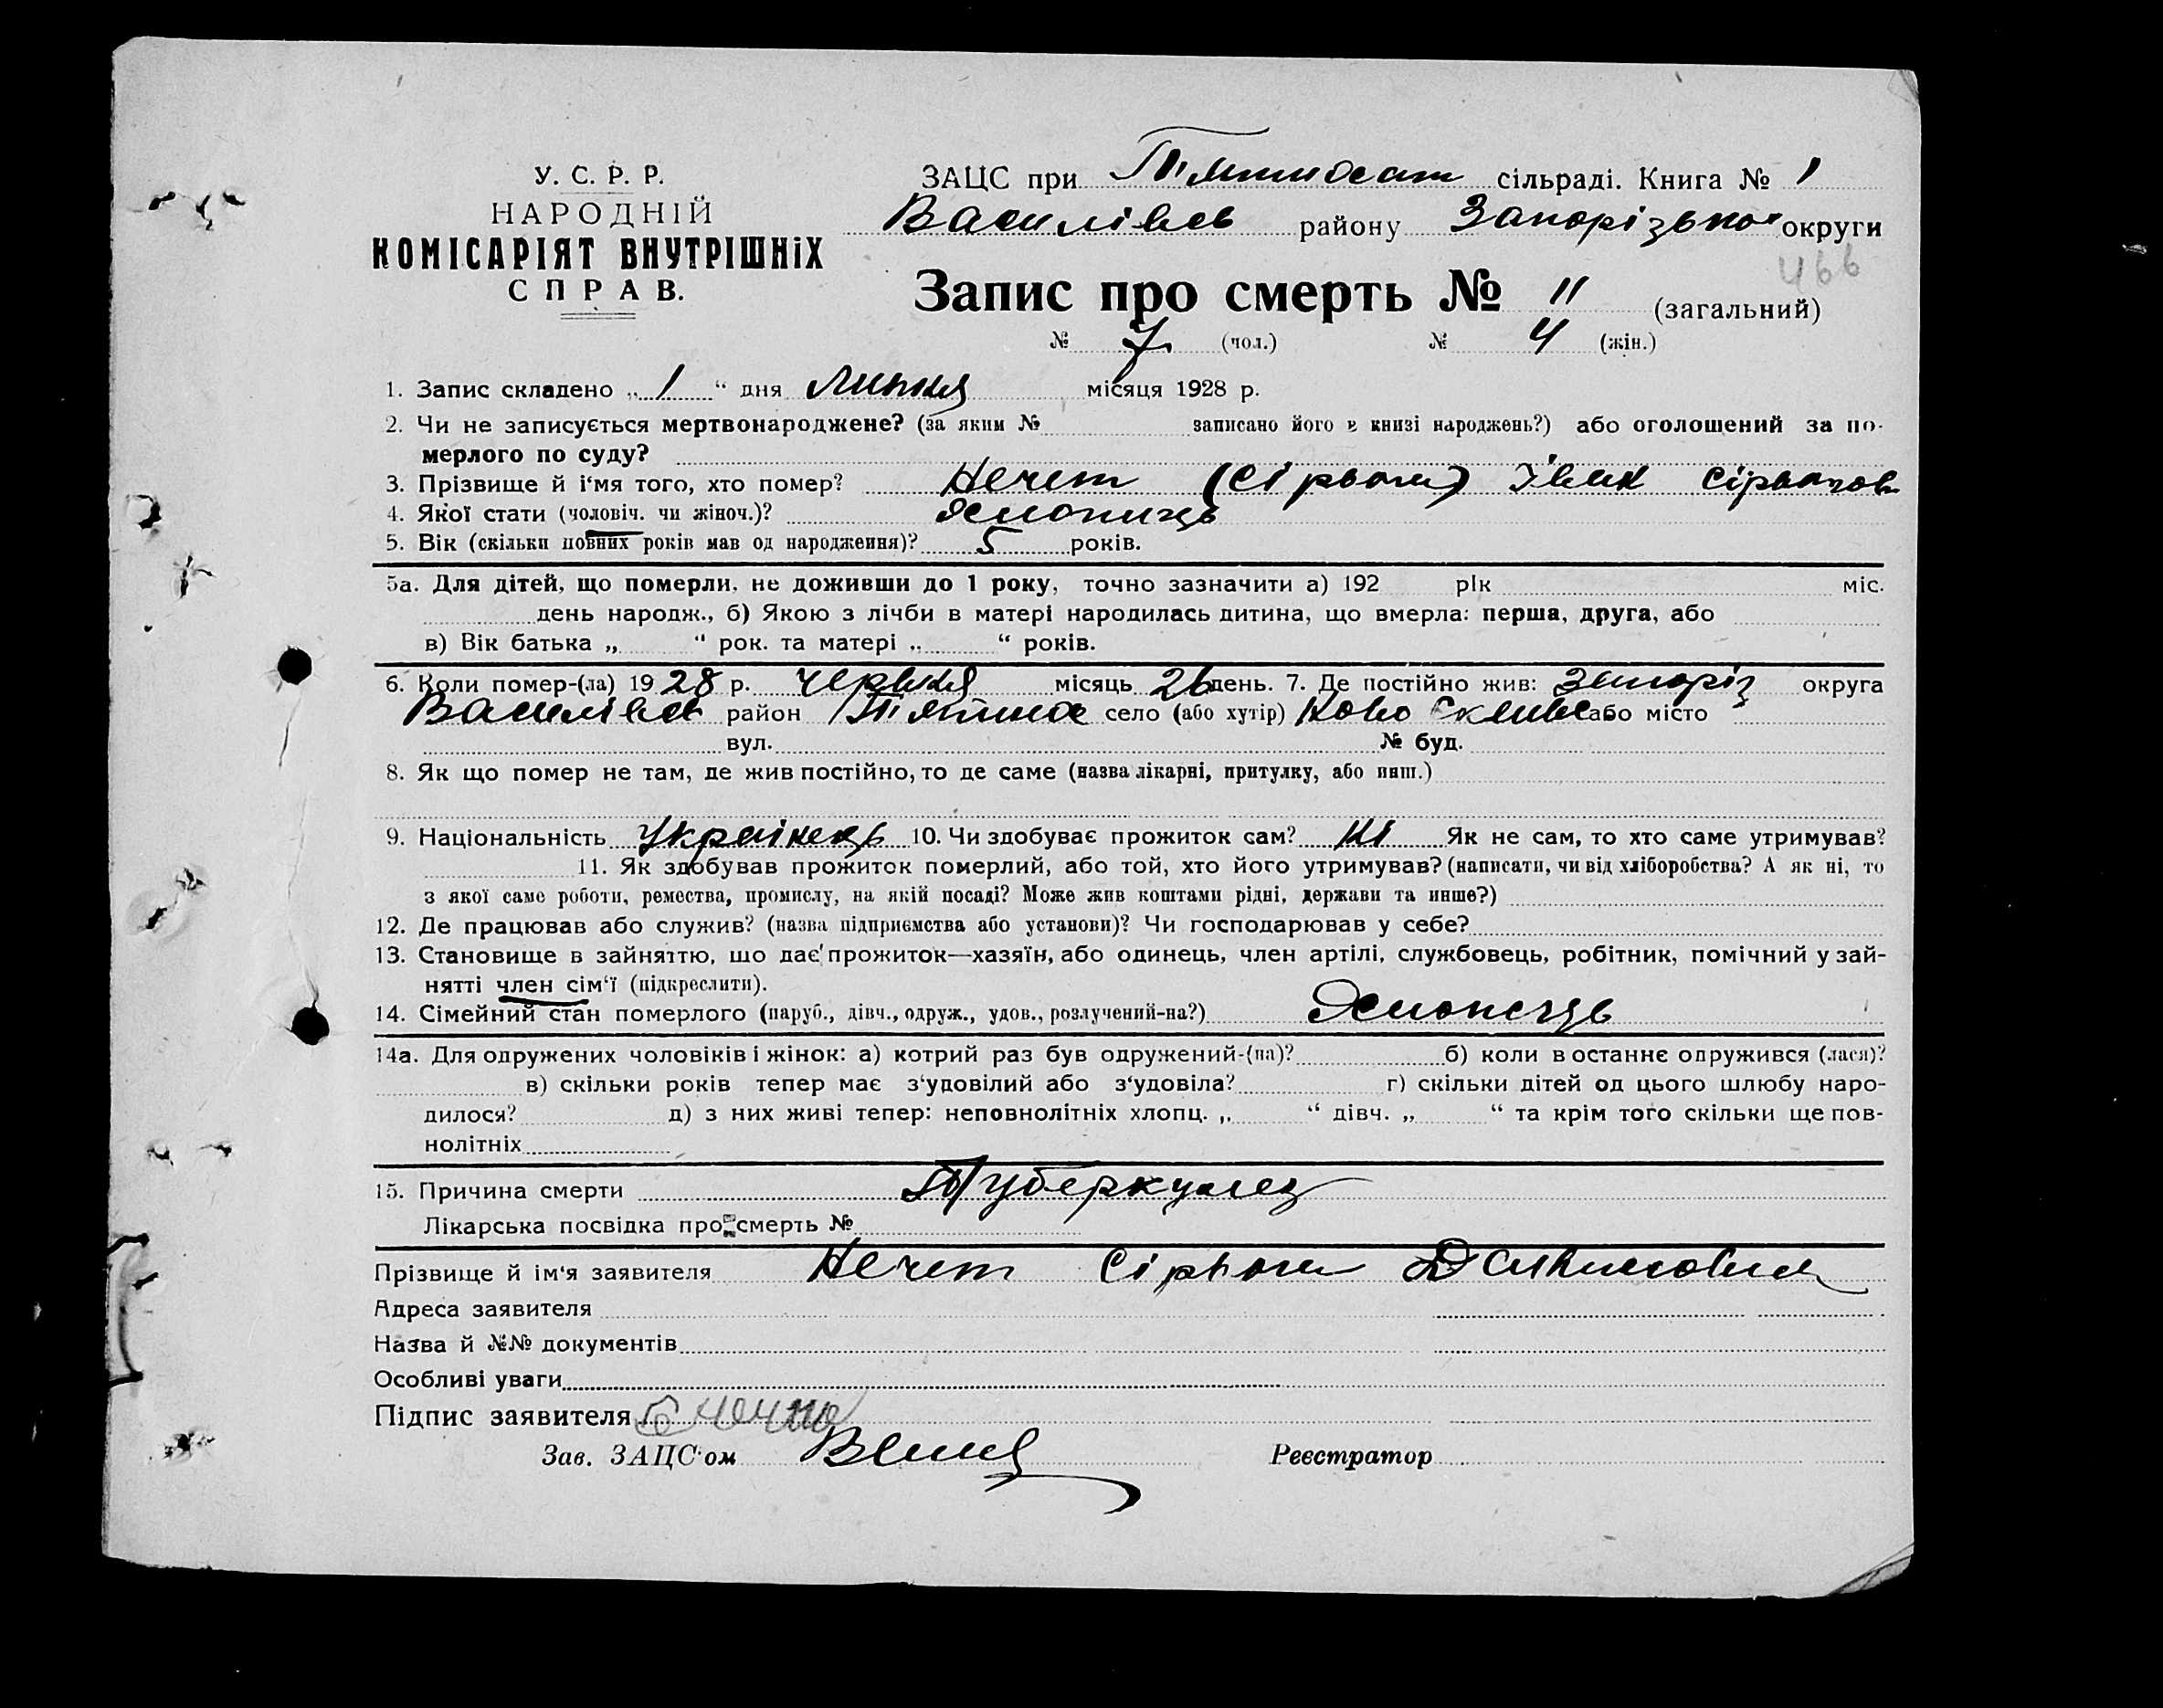 У. С. Р. Р.
НАРОДНІЙ
КОМІСАРІЯТ ВНУТРІШНІХ
СПРАВ.
ЗАЦС при сільраді. Книга № 1
Василівсь району Запорізької округи
466
Запис про смерть № 11 (загальний)
№ 7 (чол.) № 4 (жін.)
1. Запис складено „ 1 “ дня липня місяця 1928 р.
2. Чи не записується мертвонароджене? (за яким № записано його в книзі народжень?) або оголошений за по-
мерлого по суду?
3. Прізвище й і'мя того, хто помер? Нечет
4. Якої стати (чоловіч. чи жіноч.)?
5. Вік (скільки повних років мав од народження)? 5 років.
5а. Для дітей, що померли, не доживши до 1 року, точно зазначити а) 192 рік міс.
день народж., б) Якою з лічби в матері народилась дитина, що вмерла: перша, друга, або
в) Вік батька „ “ рок. та матері „ “ років.
6. Коли помер-(ла) 19 28 р. червня місяць 26 день. 7. Де постійно жив: Запоріз округа
Василівсь район село (або хутір) Ново або місто
вул. № буд.
8. Як що помер не там, де жив постійно, то де саме (назва лікарні, притулку, або инш.)
9. Національність Українець 10. Чи здобуває прожиток сам? Ні Як не сам, то хто саме утримував?
11. Як здобував прожиток померлий, або той, хто його утримував? (написати, чи від хліборобства? А як ні, то
з якої саме роботи, ремества, промислу, на якій посаді? Може жив коштами рідні, держави та инше?)
12. Де працював або служив? (назва підприємства або установи)? Чи господарював у себе?
13. Становище в зайняттю, що дає прожиток—хазяїн, або одинець, член артілі, службовець, робітник, помічний у зай-
нятті член сім‘ї (підкреслити).
14. Сімейний стан померлого (паруб., дівч., одруж., удов., розлучений-на?)
14а. Для одружених чоловіків і жінок: а) котрий раз був одружений-(на)? б) коли в останнє одружився (лася)?
в) скільки років тепер має з‘удовілий або з‘удовіла? г) скільки дітей од цього шлюбу наро-
дилося? д) з них живі тепер: неповнолітніх хлопц. „ “ дівч. „ “ та крім того скільки ще пов-
нолітніх
15. Причина смерти Туберкулез
Лікарська посвідка про смерть №
Прізвище й ім‘я заявителя Нечет
Адреса заявителя
Назва й №№ документів
Особливі уваги
Підпис заявителя
Зав. ЗАЦС‘ом Реєстратор